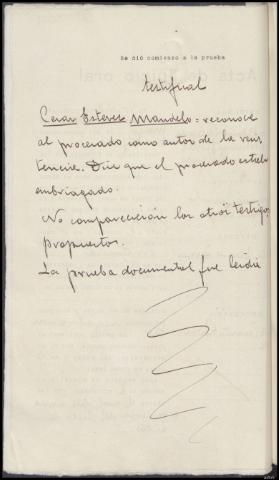 Se dió comienzo a la prueba
testifical
Cesar Esteves Mandelo = reconoce
al procesado como autor de la resis
tencia. Dice que el procesado estaba
embriagado.
No comparecieron los otros testigos
propuestos.
La prueba documental fue leida